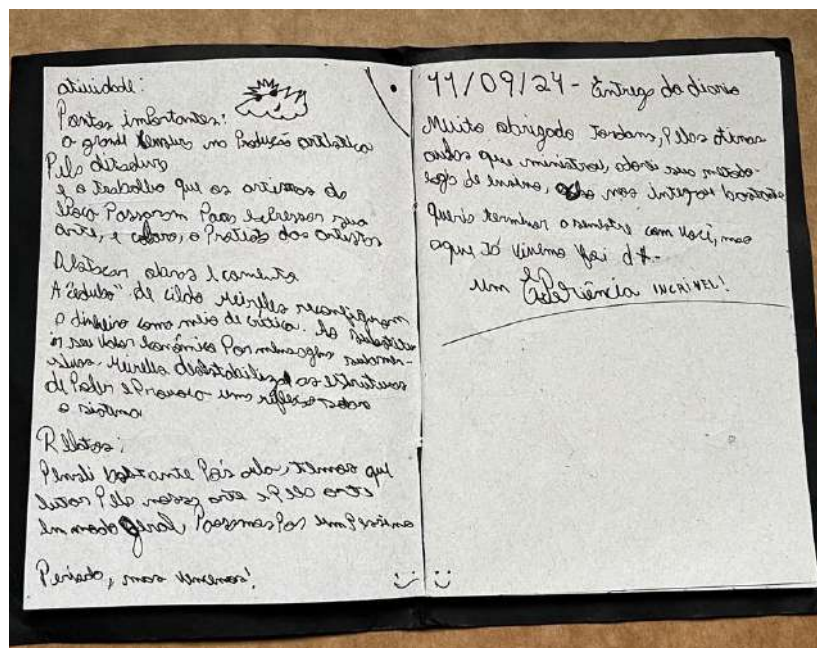 atividade:
Pontos importantes:
a grande censura na Produção artística
Pela ditadura
e o trabalho que os artistas da
época Passaram Para expressar sua
arte, e claro, o Protesto dos artistas
obras e comenta
A "cédula" de cildo meireles reconfiguram
o dinheiro como meio de crítica. Ao substitu
ir seu valor econômico Por mensagens subver-
sivas, meireles desestabiliza as estruturas
de Poder e Provoca uma reflexão sobre
o sistema
Relatos:
Pensei bastante Pós aula, temos que
lutar Pela nossa arte e Pela arte
em modo geral, Passamos Por um Péssimo
Período, mas vencemos!
11/09/24 - Entrega do diario
Muito obrigado Jordana, Pelas ótimas
aulas que ministrou, adorei sua metodo-
logia de ensino, nos integrou bastante
queria terminar o semestre com você, mas
oque já vivemo foi d+.
um EXPeriência INCRÍVEL!